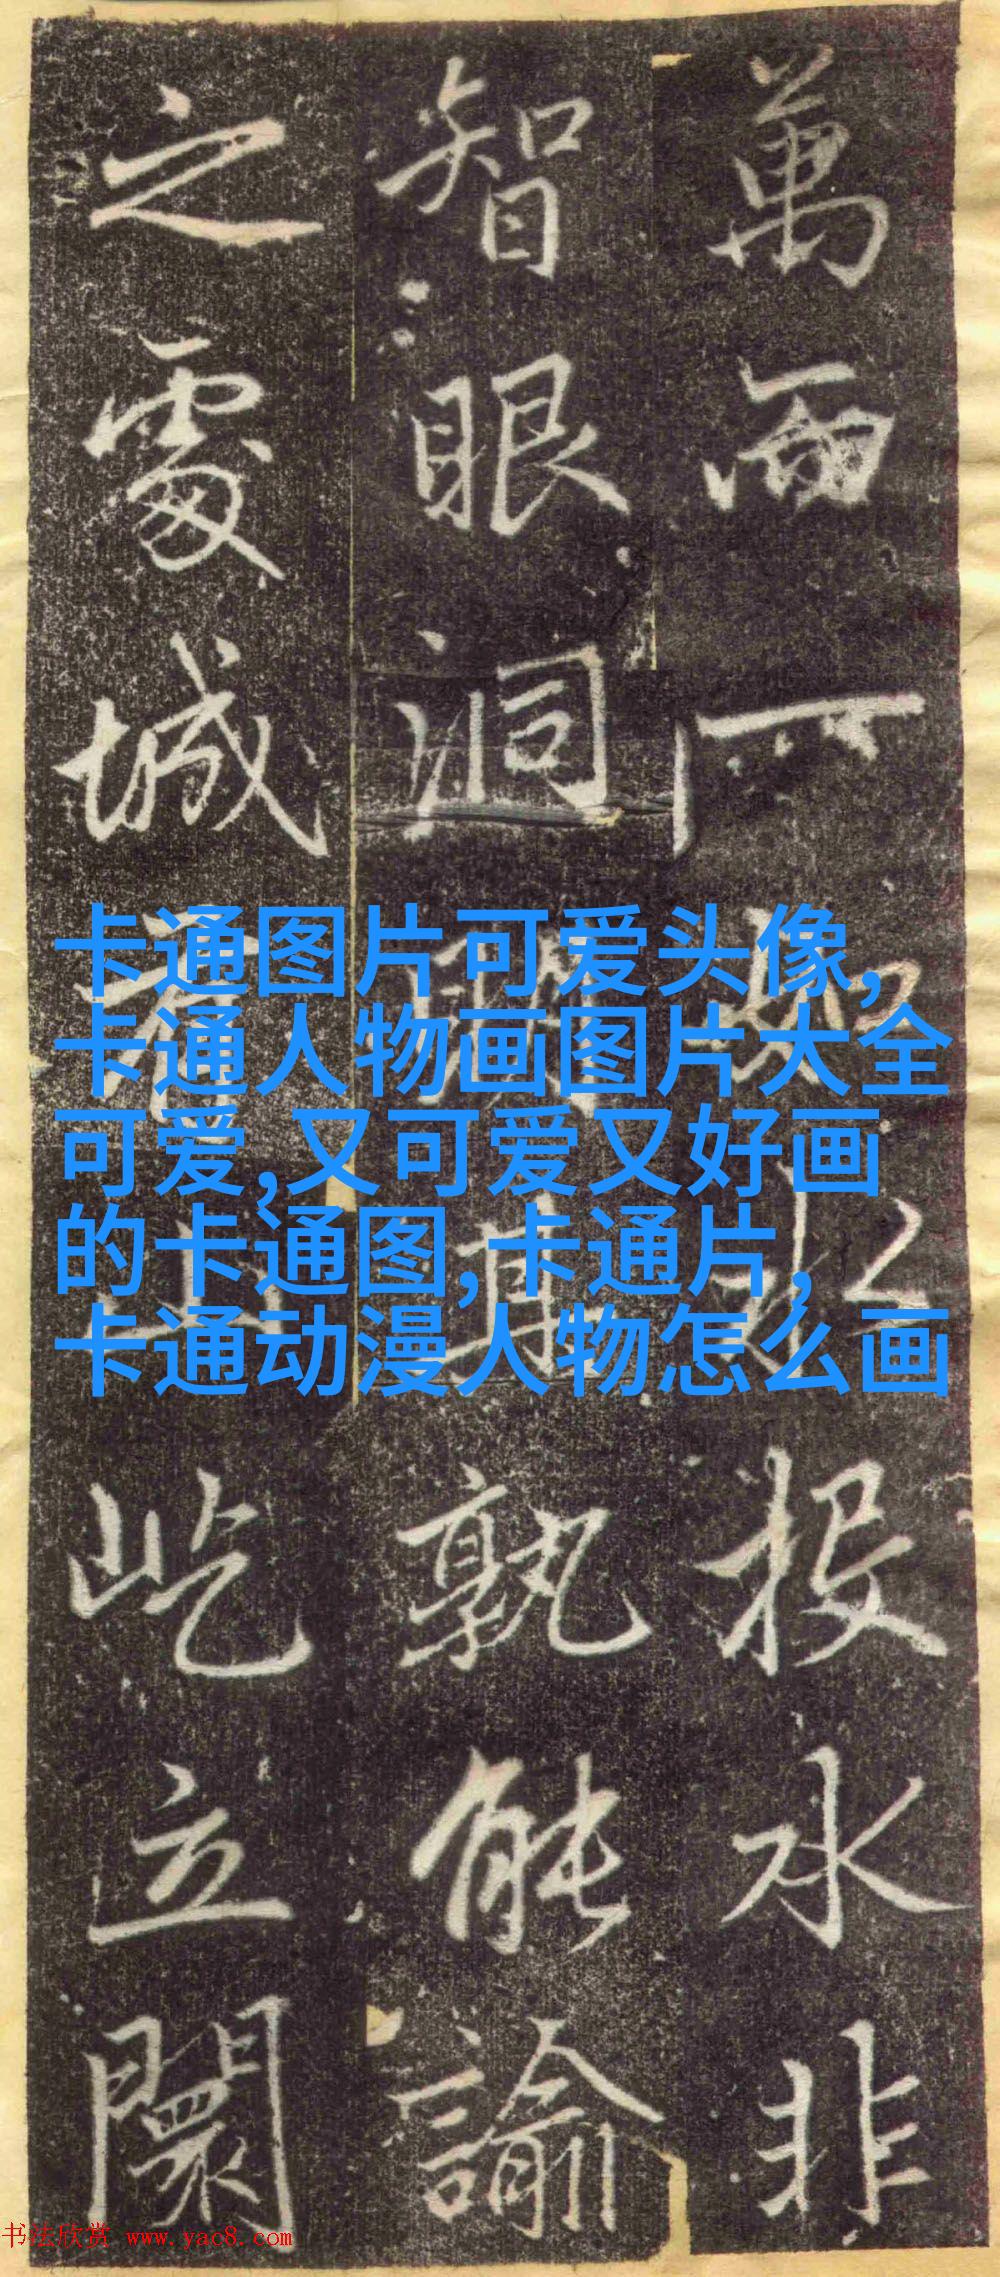 萬而一如以投水非
智眼洞 真孰能諭
之處城 屹立闤
卡通图片可爱头像,
卡通人物画图片大全
可爱,又可爱又好画
的卡通图,卡通片,
卡通动漫人物怎么画
书法欣赏 www.yac8.com